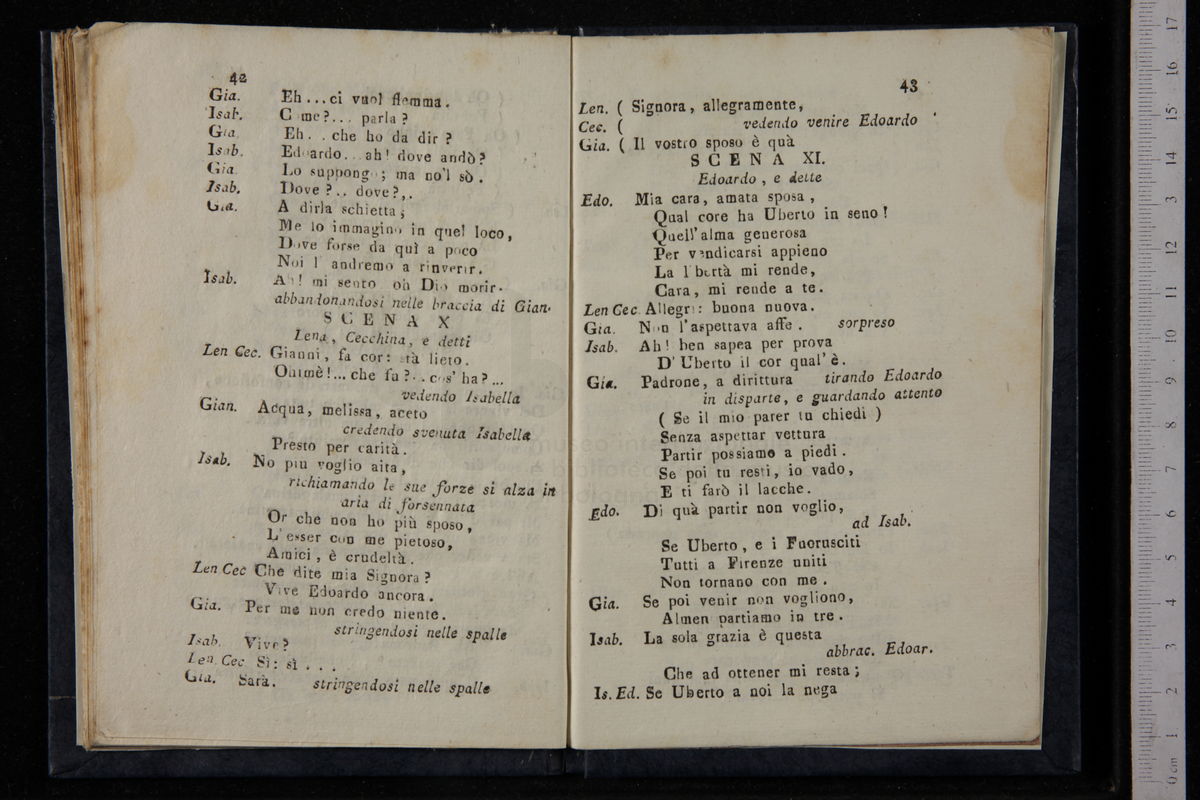 42
Gia. Eh...ci vuol flemma.
Isab. Come?... parla?
Gia. Eh. . che ho da dir?
Isab. Edoardo... ah! dove andò?
Gia. Lo suppongo; ma no'l sò.
Isab. Dove?.. dove?,.
Gia. A dirla schietta;
Me lo immagino in quel loco,
Dove forse da quì a poco
Noi l' andremo a rinvenir.
Isab. Ah! mi sento oh Dio morir.
abbandonandosi nelle braccia di Gian.
SCENA X
Lena, Cecchina, e detti
Len Cec. Gianni, fa cor: stà lieto.
Ohimè!... che fu?.. cos' ha?...
vedendo Isabella
Gian. Acqua, melissa, aceto
credendo svenuta Isabella
Presto per carità.
Isab. No più voglio aita,
richiamando le sue forze si alza in
aria di forsennata
Or che non ho più sposo,
L' esser con me pietoso,
Amici, è crudeltà.
Len Cec Che dite mia Signora?
Vive Edoardo ancora.
Gia. Per me non credo niente.
stringendosi nelle spalle
Isab. Vive?
Len Cec Sì: sì . . .
Gia. Sarà. stringendosi nelle spalle
43
Len. ( Signora, allegramente,
Cec. ( vedendo venire Edoardo
Gia. ( Il vostro sposo è quà
SCENA XI.
Edoardo, e dette
Edo. Mia cara, amata sposa,
Qual core ha Uberto in seno!
Quell' alma generosa
Per vendicarsi appieno
La libertà mi rende,
Cara, mi rende a te.
Len Cec. Allegri: buona nuova.
Gia. Non l'aspettava affe. sorpreso
Isab. Ah! ben sapea per prova
D' Uberto il cor qual' è.
Gia. Padrone, a dirittura tirando Edoardo
in disparte, e guardando attento
( Se il mio parer tu chiedi )
Senza aspettar vettura
Partir possiamo a piedi.
Se poi tu resti, io vado,
E ti farò il lacche.
Edo. Di quà partir non voglio,
ad Isab.
Se Uberto, e i Fuorusciti
Tutti a Firenze uniti
Non tornano con me.
Gia. Se poi venir non vogliono,
Almen partiamo in tre.
Isab. La sola grazia è questa
abbrac. Edoar.
Che ad ottener mi resta;
Is. Ed. Se Uberto a noi la nega
0 cm 1 2 3 4 5 6 7 8 9 10 11 12 13 14 15 16 17